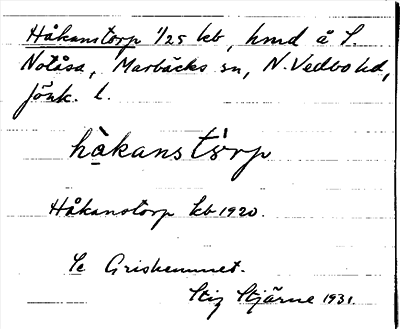 Håkanstorp 1/25 kb, hmd å S.
Notåsa, Marbäcks sn, N. Vedbo hd,
Jönk. l.
hàkans tòrp
Håkanstorp kb 1920.
Se Griskemmet.
Stig Stjärne 1931.